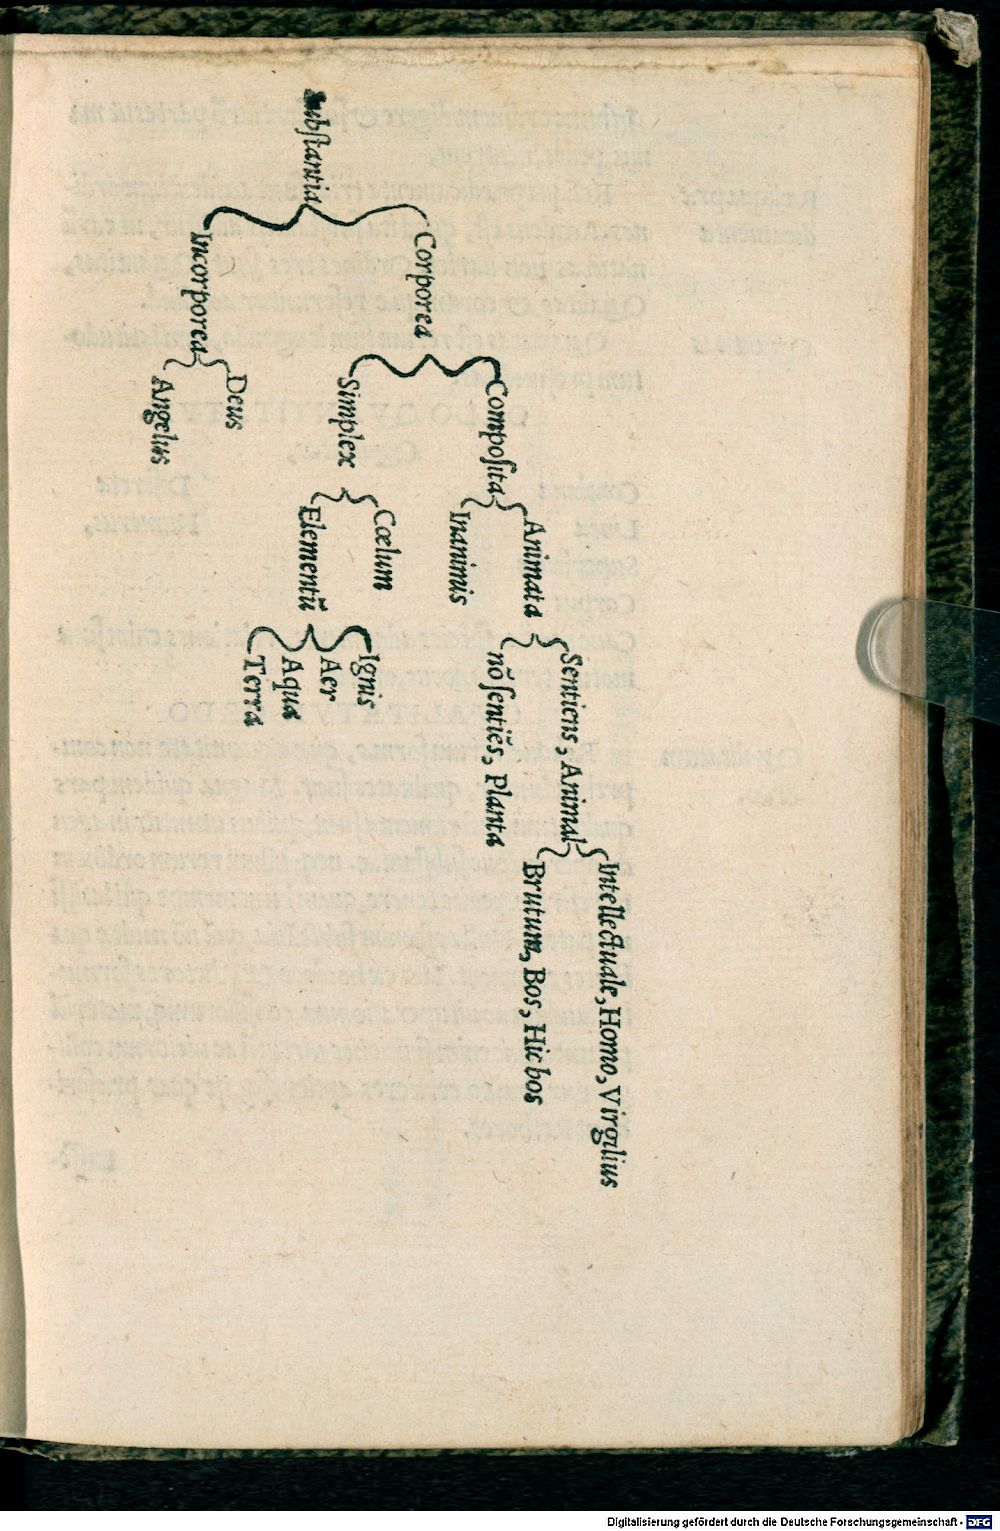 Substantia
Corporea
Composita
Animata
Sentiens, Animal
Intellectuale, Homo, Virgilius
Brutum, Bos, Hic bos
nō sentiēs, planta
Inanimis
Simplex
Cœlum
Elementū
Ignis
Aer
Aqua
Terra
Incorporea
Deus
Angelus
Digitalisierung gefördert durch die Deutsche Forschungsgemeinschaft - DFG